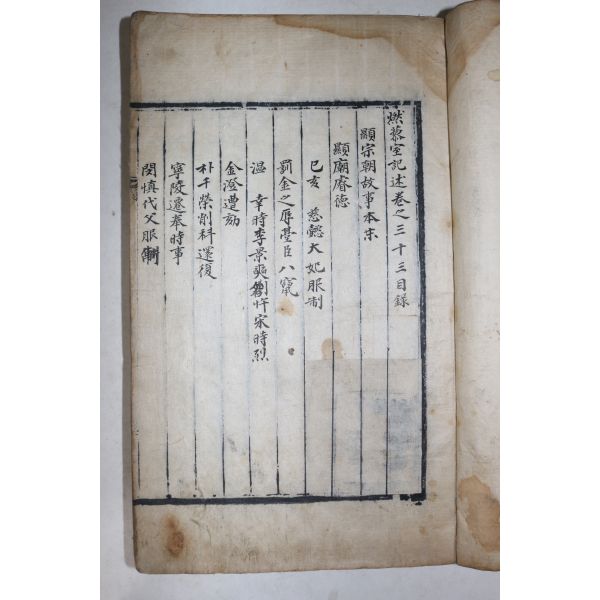 燃藜室記述卷之三十三目録
顯宗朝故事本末
顯廟睿德
己亥 慈懿大妃服制
罰金之辱臺臣八竄
温 幸時李景奭劄忤宋時烈
金澄遭劾
朴千榮削科還復
寧陵遷奉時事
閔愼代父服